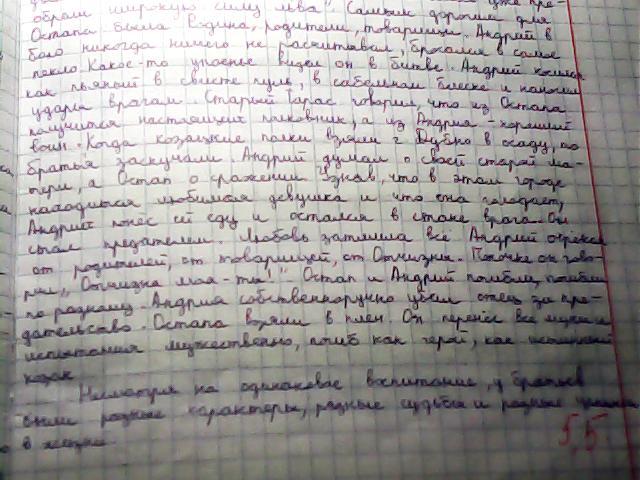 обрали широкую силу льва". Самым дорогим для
Остапа была Родина, родители, товарищи. Андрий в
бою никогда ничего не рассчитывал, бросался в самое
пекло. Какое-то упоенье видел он в битве. Андрий
как пьяный в свисте пуль, в сабельном блеске и
ударял врагам. Старый Тарас говорил, что из Остапа
получится настоящий полковник, а из Андрия - хороший
воин. Когда козацкие полки взяли г. Дубно в осаду,
братья заскучали. Андрий думал о своей старой ма-
тери, а Остап о сражении. Узнав, что в этом городе
находиться любимая девушка и что она голодает,
Андрий понёс ей еду и остался в стане врага. Он
стал предателем. Любовь затмила всё. Андрий отрёкся
от родителей, от товарищей, от Отчизны. Полячке он гово-
рил, "Отчизна моя - ты!". Остап и Андрий погибли, погибли
по разному. Андрия собственноручно убил отец за пре-
дательство. Остапа взяли в плен. Он перенёс все муки и
испытания мужественно, погиб как герой, как истинный
козак.
Несмотря на одинаковое воспитание, у братьев
были разные характеры, разные судьбы и разные
в жизни.
5,5.